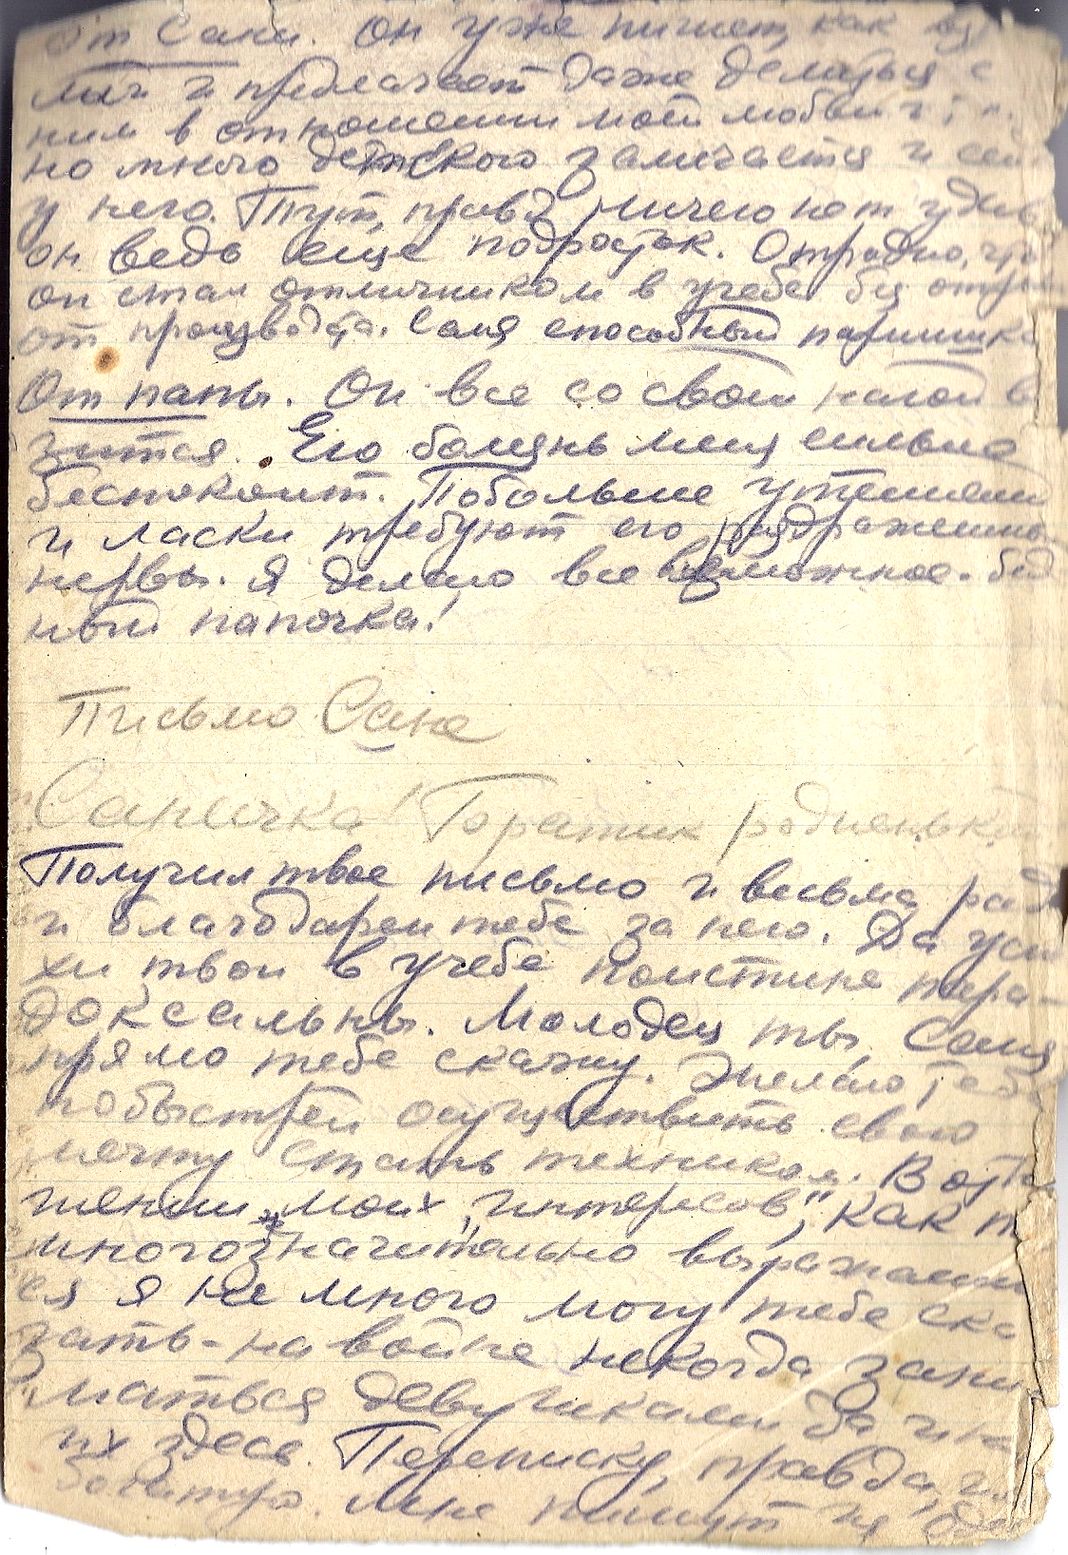 От Сани. Он уже пишет, как
и предлагает даже делиться с
ним в отношении моей любви и т. п.
но много детского замечается и
у него. Тут, правд, ничего нет удив
он ведь еще подросток. Отрадно, что
он стал отличником в учебе без отры
от производства. Саня способный паришка
От папы. Он все со своей ногой в
зится. Его болезнь меня сильно
беспокоит. Побольше утешени
и ласки требуют его раздраженны
нервы. Я делаю все возможное. Бед
ный папочка!
Письмо Сане
Санечка! Братик родненький
Получил твое письмо и весьма рад
и благодарен тебе за него. Да успе
хи твои в учебе поистине пара-
доксальны. Молодец ты, Саня
прямо тебе скажу. Желаю тебе
побыстрей осуществить свою
мечту стать техником. В отно
шении „моих интересов", как т
многозначительно выражаеш
ся я не много могу тебе ска
зать - на войне некогда зани
маться девушками да и н
их здесь. Переписку, правда,
мне пишут из Оде